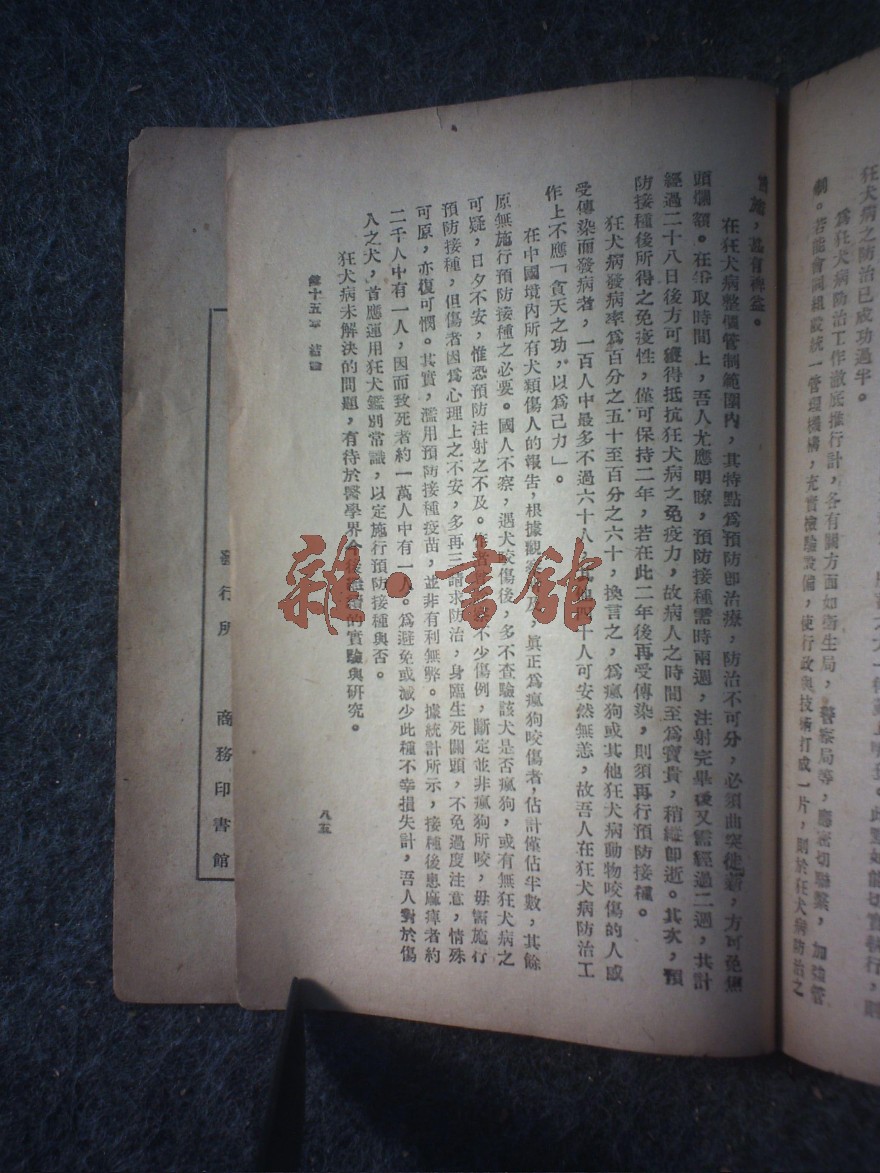 狂犬病之防治已成功過半。
爲狂犬病防治工作澈底推行計,各有關方面如衞生局,警察局等,應密切聯繫,加強管
制。若能會同組設統一管理機構,充實檢驗設備,使行政與技術打成一片,則於狂犬病防治之
甚有裨益。
在狂犬病整個管制範圍內,其特點爲預防卽治療,防治不可分,必須曲突徙薪,方可免焦
頭爛額。在爭取時間上,吾人尤應明瞭,預防接種需時兩週,注射完畢後又需經過二週,共計
經過二十八日後方可獲得抵抗狂犬病之免疫力,故病人之時間至爲寶貴,稍縱卽逝。其次,預
防接種後所得之免疫性,僅可保持二年,若在此二年後再受傳染,則須再行預防接種。
狂犬病發病率爲百分之五十至百分之六十,換言之,爲瘋狗或其他狂犬病動物咬傷的人感
受傳染而發病者,一百人中最多不過六十人,其他四十人可安然無恙,故吾人在狂犬病防治工
作上不應「貪天之功,以爲己力」。
在中國境內所有犬類傷人的報告,根據觀察所及,眞正爲瘋狗咬傷者,估計僅佔半數,其餘
原無施行預防接種之必要。國人不察,遇犬咬傷後,多不查驗該犬是否瘋狗,或有無狂犬病之
可疑,日夕不安,惟恐預防注射之不及。作者不少傷例,斷定並非瘋狗所咬,毋需施行
預防接種,但傷者因爲心理上之不安,多再三請求防治,身臨生死關頭,不免過度注意,情殊
可原,亦復可憫。其實,濫用預防接種疫苗,並非有利無弊。據統計所示,接種後患麻痺者約
二千人中有一人,因而致死者約一萬人中有一人。爲避免或減少此種不幸損失計,吾人對於傷
人之犬,首應運用狂犬鑑別常識,以定施行預防接種與否。
狂犬病未解決的問題,有待於醫學界今後繼續的實驗與研究。
第十五章 結論
八五
發行所 商務印書館
雜·書館